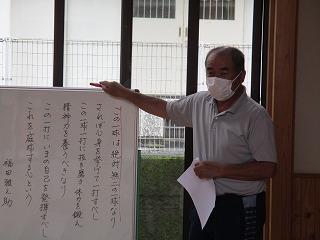 この一球は絶対無二の一球なり
されば心身を挙げて一打すべし
この一球一打に技を磨き体力を鍛へ
精神力を養うべきなり
この一打に今の自己を発揮すべし
これを庭球する心という
福田雅之助